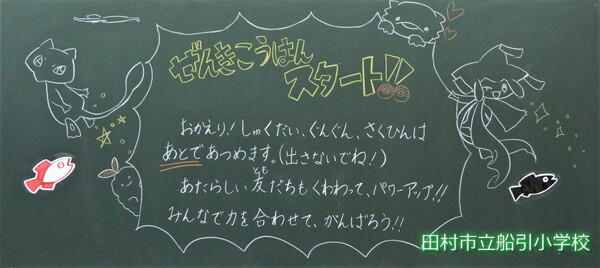 ぜんきこうはん
スタート!!
おかえり!しゅくだい、ぐんぐん、さくひんは
あとであつめます。(出さないでね!)
あたらしい友だちもくわわって、パワーアップ!!
とも
みんなで力を合わせて、がんばろう!!
田村市立船引小学校